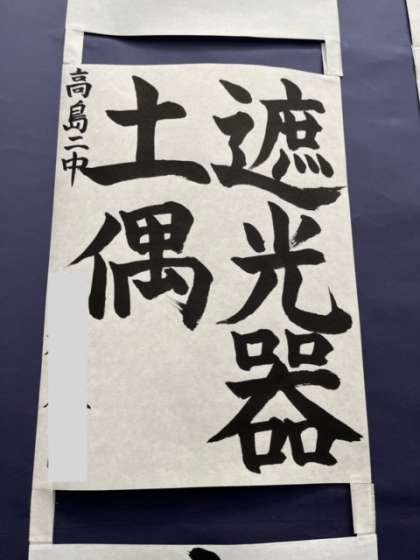 遮光器
土偶
高島二中